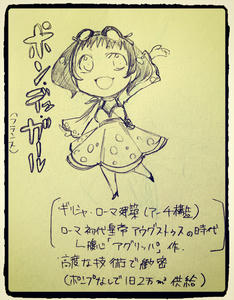 ポン・デュガール
(フランス)
ギリシャ・ローマ建築(アーチ構造)
ローマ初代皇帝アウグストゥスの時代
└腹心「アグリッパ」作.
高度な技術で緻密
(ポンプなしで1日2万 供給)